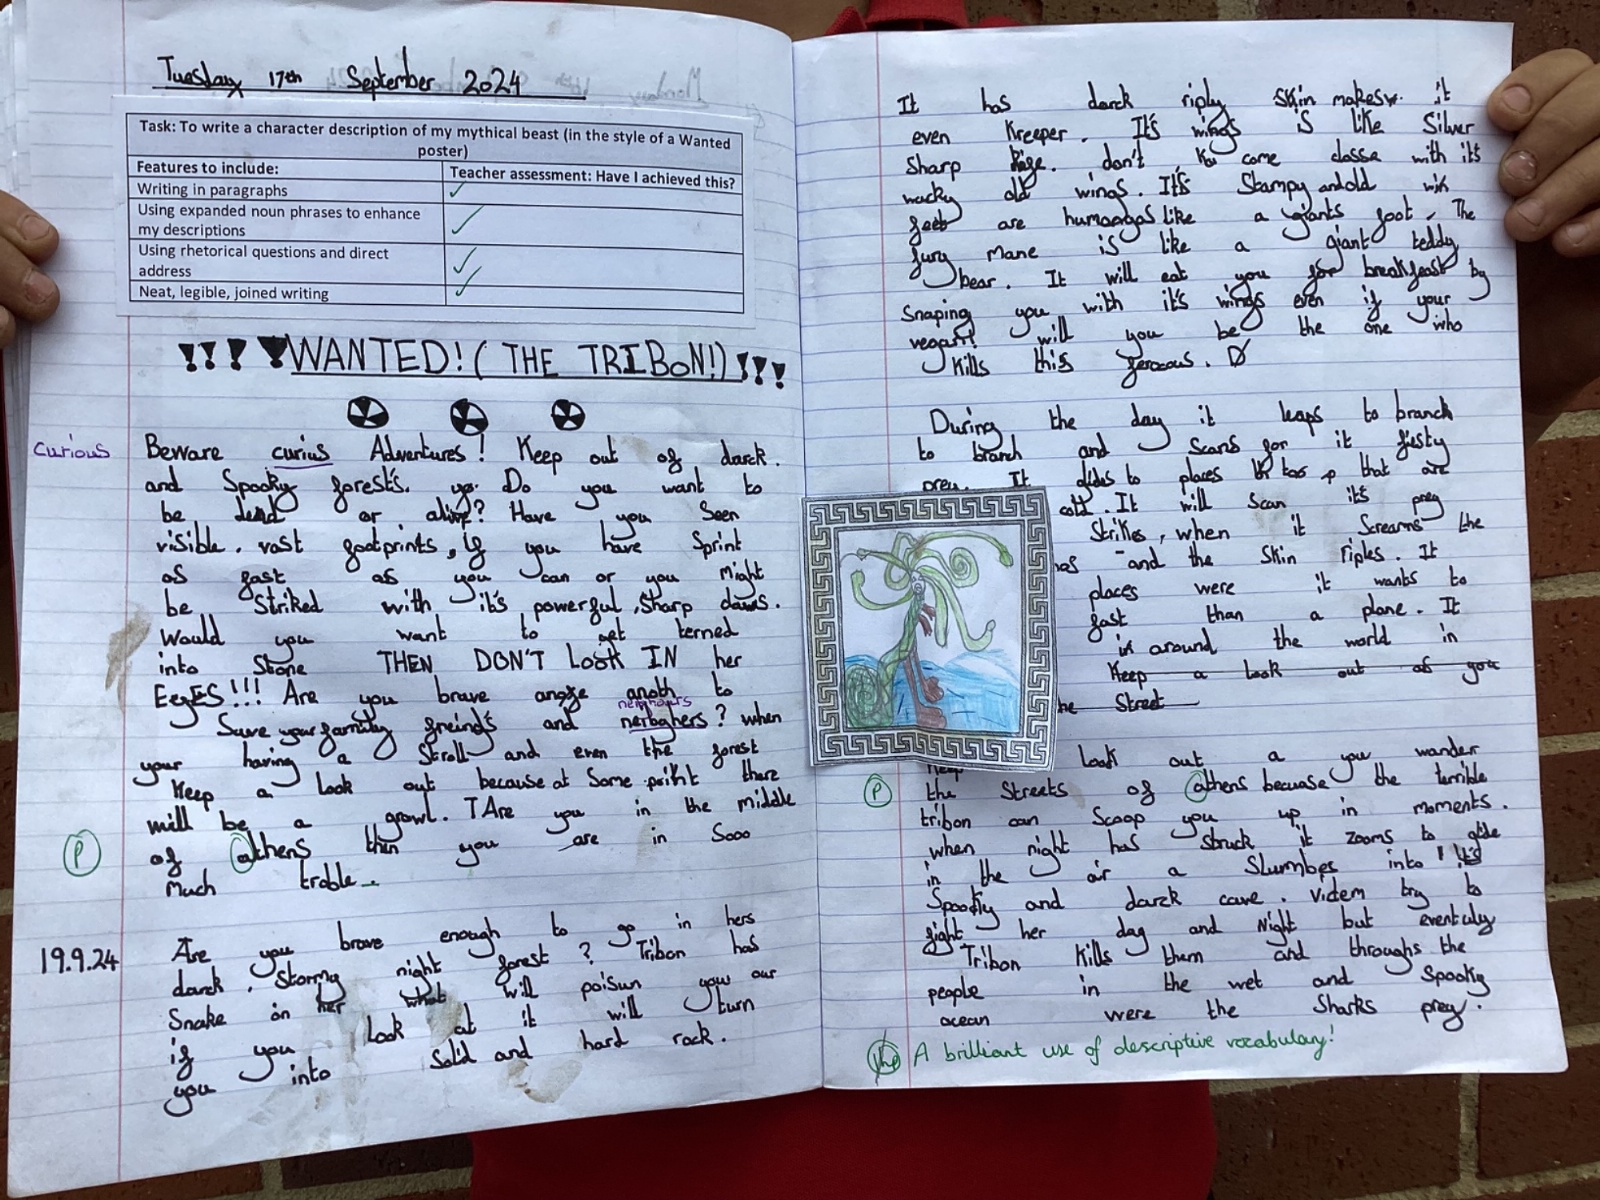 Tuesday 17th September 2024
Task: To write a character description of my mythical beast (in the style of a Wanted
poster)
Features to include:
Teacher assessment: Have I achieved this?
Writing in paragraphs
Using expanded noun phrases to enhance
my descriptions
Using rhetorical questions and direct
address
Neat, legible, joined writing
!!!! WANTED! ( THE TRIBoN!) !!!
curious
Beware curius Adventures! Keep out of darck.
and Spooky forest's. Do you want to
be dead or alive? Have you Seen
visible. vast footprints, if you have Sprint
as fast as you can or you Might
be Striked with it's powerful, Sharp claws.
Would you want to get terned
into Stone THEN DON'T LooK IN her
EeyES!!! Are you brave to
neighbours
Save your family freind's and nerbghers? when
your having a Stroll and even the forest
Keep a look out because at Some there
will be a growl. Are you in the middle
P
of athens then you are in Sooo
Much troble
19.9.24
Are you brave enough to go in hers
darck, Stormy night forest? Tribon has
Snake on her what will poisun our
if you Look at it will turn
you into Solid and hard rock.
It has darck riply Skin makes it
even Kreeper. It's wings is like Silver
Sharp don't come with it's
wacky old wings. It's Stampy and old
feet are humongos like a giants foot. The
fury Mane is like a giant teddy
bear. It will eat you for breakfeast by
Snaping you with it's wings even if your
vegan! will you be the one who
Kills this ferocous.
During the day it leaps to branch
to branch and Scans for it fiesty
prey. It to places that are
It will Scan it's prey
Strikes, when it Screams the
and the Skin riples. It
places were it wants to
fast than a plane. It
is around the world in
Keep a look out as you
he Street
Keep Look out a you wander
P
the Streets of athens because the terrible
tribon can Scoop you up in moments.
when night has Struck it zooms to glide
in the air a Slumbes into it's
Spooky and darck cave. Videm try to
fight her day and Night but eventuly
Tribon Kills them and throughs the
people in the wet and Spooky
ocean were the Sharks prey.
A brilliant use of descriptive vocabulary!